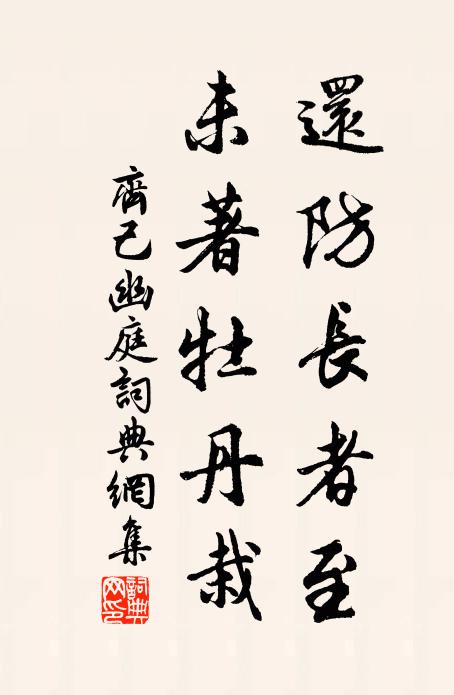 還防長者至
未著牡丹栽
齊己幽庭詞典網集
詞典網印